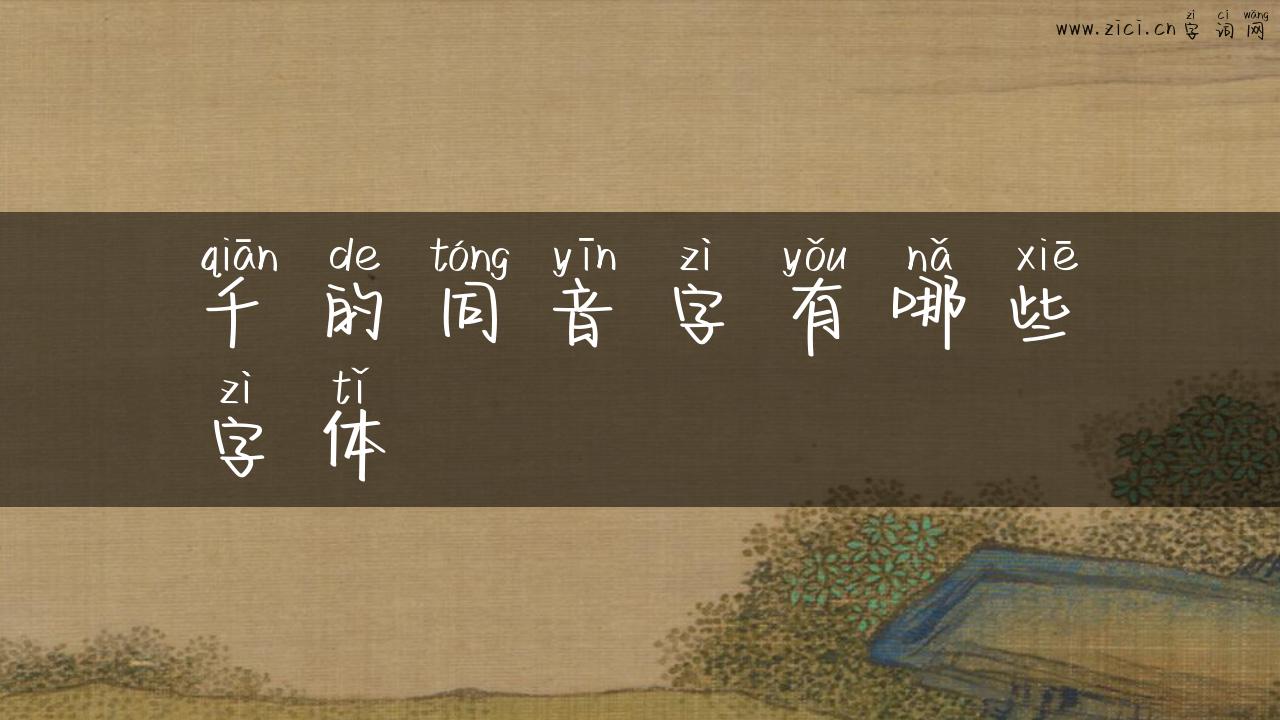 zì cí wǎng
www.zici.cn字词网
qiān de tóng yīn zì yǒu nǎ xiē
千的同音字有哪些
zì tǐ
字体